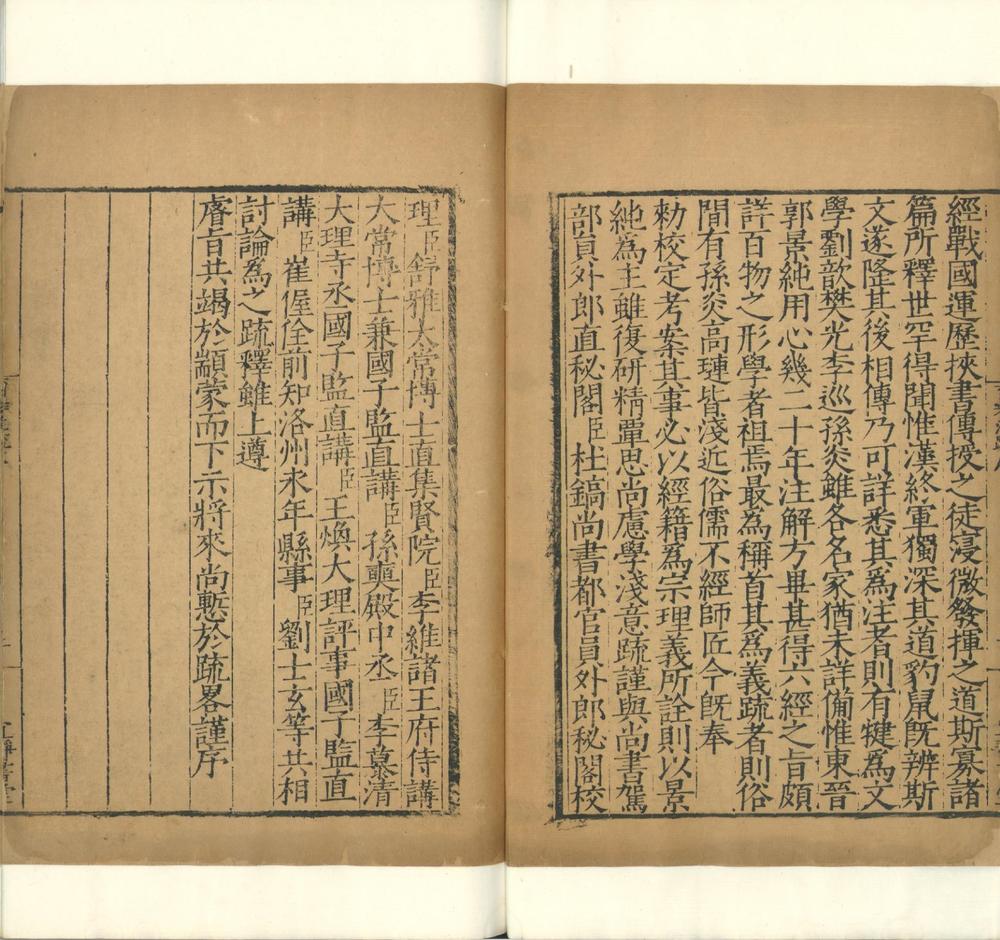 經戰國運歷挾書傳授之徒寖微發揮之道斯寡諸
篇所釋世罕得聞惟漢終軍獨深其道豹鼠旣辨斯
文遂隆其後相傳乃可詳悉其爲注者則有犍爲文
學劉歆樊光李巡孫炎雖各名家猶未詳備惟東晉
郭景純用心幾二十年注解方畢甚得六經之旨頗
詳百物之形學者祖焉最爲稱首其爲義疏者則俗
間有孫炎高璉皆淺近俗儒不經師匠今旣奉
勑校定考案其事必以經籍爲宗理義所詮則以景
純為主雖復研精覃思尚慮學淺意疏謹與尚書駕
部員外郎直秘閣臣杜鎬尚書都官員外郎秘閣校
理臣舒雅太常博士直集賢院臣李維諸王府侍講
太常博士兼國子監直講臣孫奭殿中丞臣李慕清
大理寺丞國子監直講臣王煥大理評事國子監直
講臣崔偓佺前知洺州永年縣事臣劉士玄等共相
討論爲之疏釋雖上遵
睿旨共竭於顓蒙而下示將來尚慙於疏畧謹序